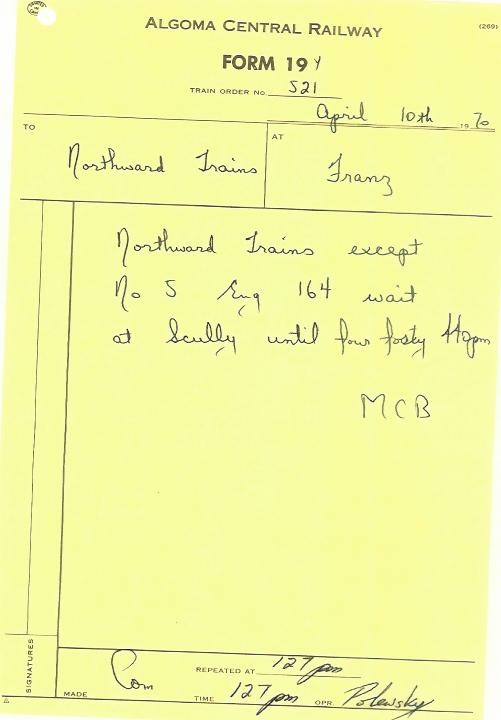 ALGOMA CENTRAL RAILWAY
(269)
FORM 19 Y
TRAIN ORDER NO. 521
April 10th 1970
TO
AT
Northward Trains
Franz
Northward Trains except
No 5 Eng 164 wait
at Scully until four forty 440pm
MCB
SIGNATURES
MADE Com
REPEATED AT 127 pm
TIME 127 pm OPR. Polewsky